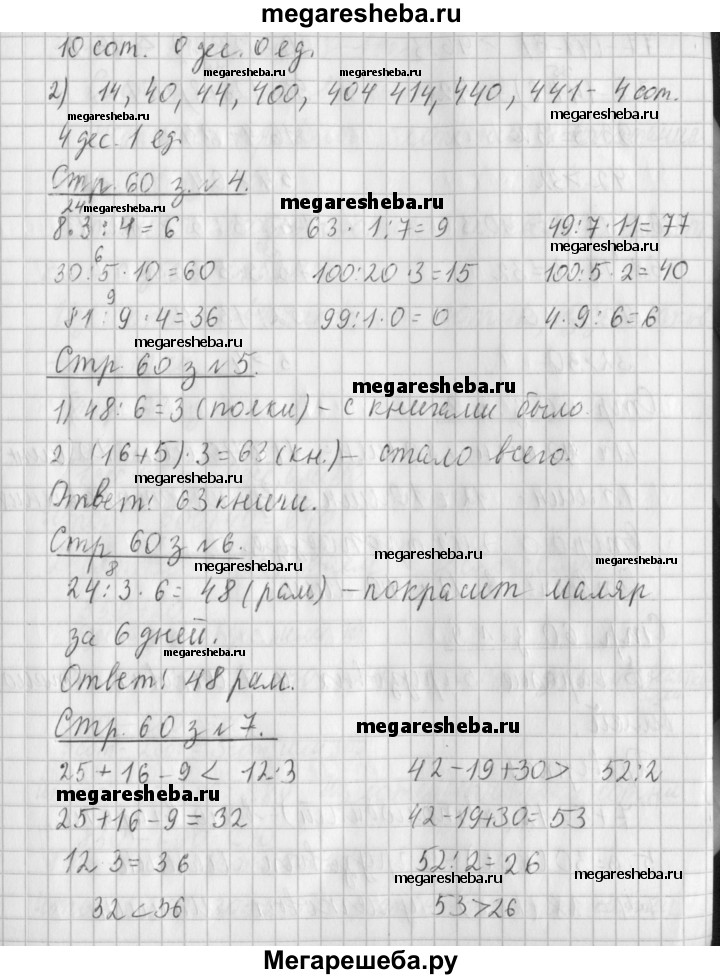 megaresheba.ru
10 сот. 0 дес. 0 ед.
megaresheba.ru megaresheba.ru
2) 14, 40, 44, 400, 404 414, 440, 441 - 4 сот.
megaresheba.ru megaresheba.ru
4 дес. 1 ед.
Стр. 60 з. № 4.
megaresheba.ru megaresheba.ru
24
8·3:4=6 63·1:7=9 49:7·11=77
6
30:5·10=60 100:20·3=15 100:5·2=40
megaresheba.ru megaresheba.ru
9
81:9·4=36 99:1·0=0 4·9:6=6
megaresheba.ru
Стр. 60 з № 5.
megaresheba.ru
1) 48:6=3 (полки) - с книгами было.
2 (16+5)·3=63 (кн.) - стало всего.
megaresheba.ru
Ответ: 63 книги.
Стр 60 з № 6.
megaresheba.ru megaresheba.ru megaresheba.ru
8
24:3·6=48 (рам) - покрасит маляр
за 6 дней.
megaresheba.ru
Ответ: 48 рам.
Стр. 60 з № 7.
megaresheba.ru
25+16-9< 12·3 42-19+30> 52:2
megaresheba.ru
25+16-9=32 42-19+30=53
12 3=36 52:2=26
megaresheba.ru megaresheba.ru
32<36 53>26
Мегарешеба.ру